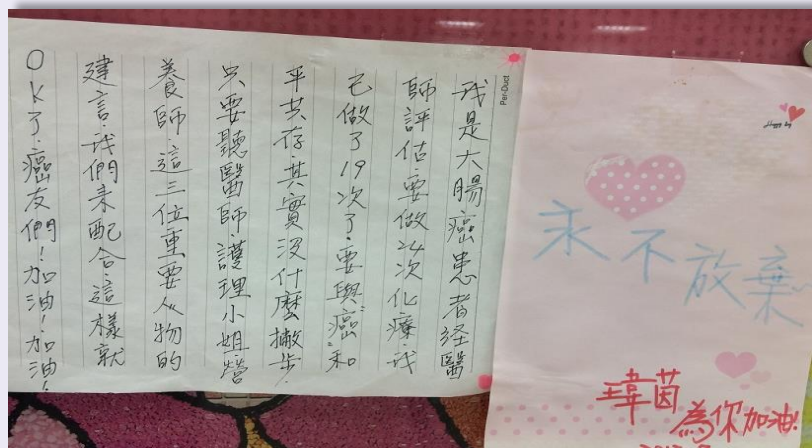 我是大腸癌患者経醫
師評估要做24次化療.我
已做了19次了.要與“癌”和
平共存其實沒什麼撇步.
只要聽醫師.護理小姐營
養師.這三位重要人物的
建言.我們來配合.這樣就
OK了.癌友們!加油!加油!
Per-Duct
永不放棄
王韋茵
為你加油!